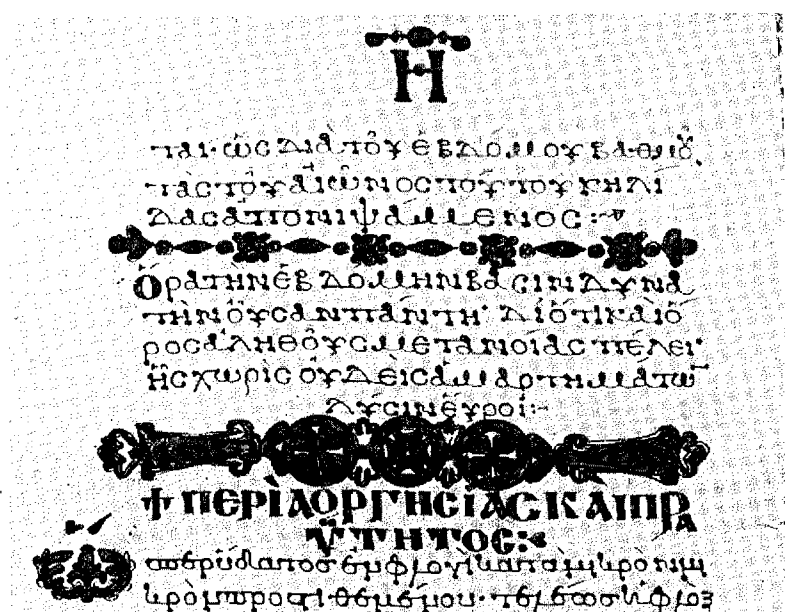 Η
ται· ὡς διὰ τοῦ ἑβδόμου βαθμοῦ
τὰς τοῦ αἰῶνος τούτου κηλί
δας ἀπονιψάμενος:~
Ὅρα τὴν ἑβδόμην βάσιν δυνα
τὴν οὖσαν πάντη· διότι καὶ ὅ
ρος ἀληθοῦς μετανοίας πέλει·
ἧς χωρὶς οὐδεὶς ἁμαρτημάτω̅
λύσιν εὕροι:-
+ ΠΕΡῚ ἈΟΡΓΗΣΊΑΣ ΚΑΙ ΠΡΑ
ΫΤΗΤΟΣ:
ὥσπερ ὕδατος ἐν φλογὶ κατα μικρὸν μι
κρὸν προστιθεμένου· τελείως ἡ φλὸξ